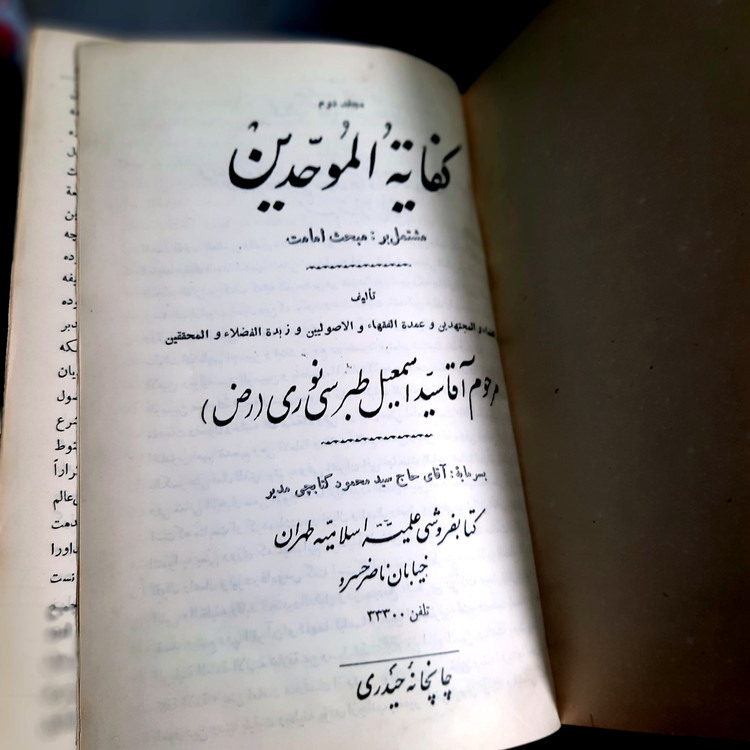 مجلد دوم
كفاية المُوحّدين
مشتمل بر : مبحث امامت
تأليف
و المجتهدين و عمدة الفقهاء و الاصوليين و زبدة الفضلاء و المحققين
مرحوم آقا سيّد اسمعيل طبرسى نورى (رض)
بسرمايهٔ : آقاى حاج سيد محمود كتابچى مدير
كتابفروشى علميّه اسلاميّه طهران
خيابان ناصر خسرو
تلفن ۳۳۳۰۰
چاپخانهٔ حيدرى